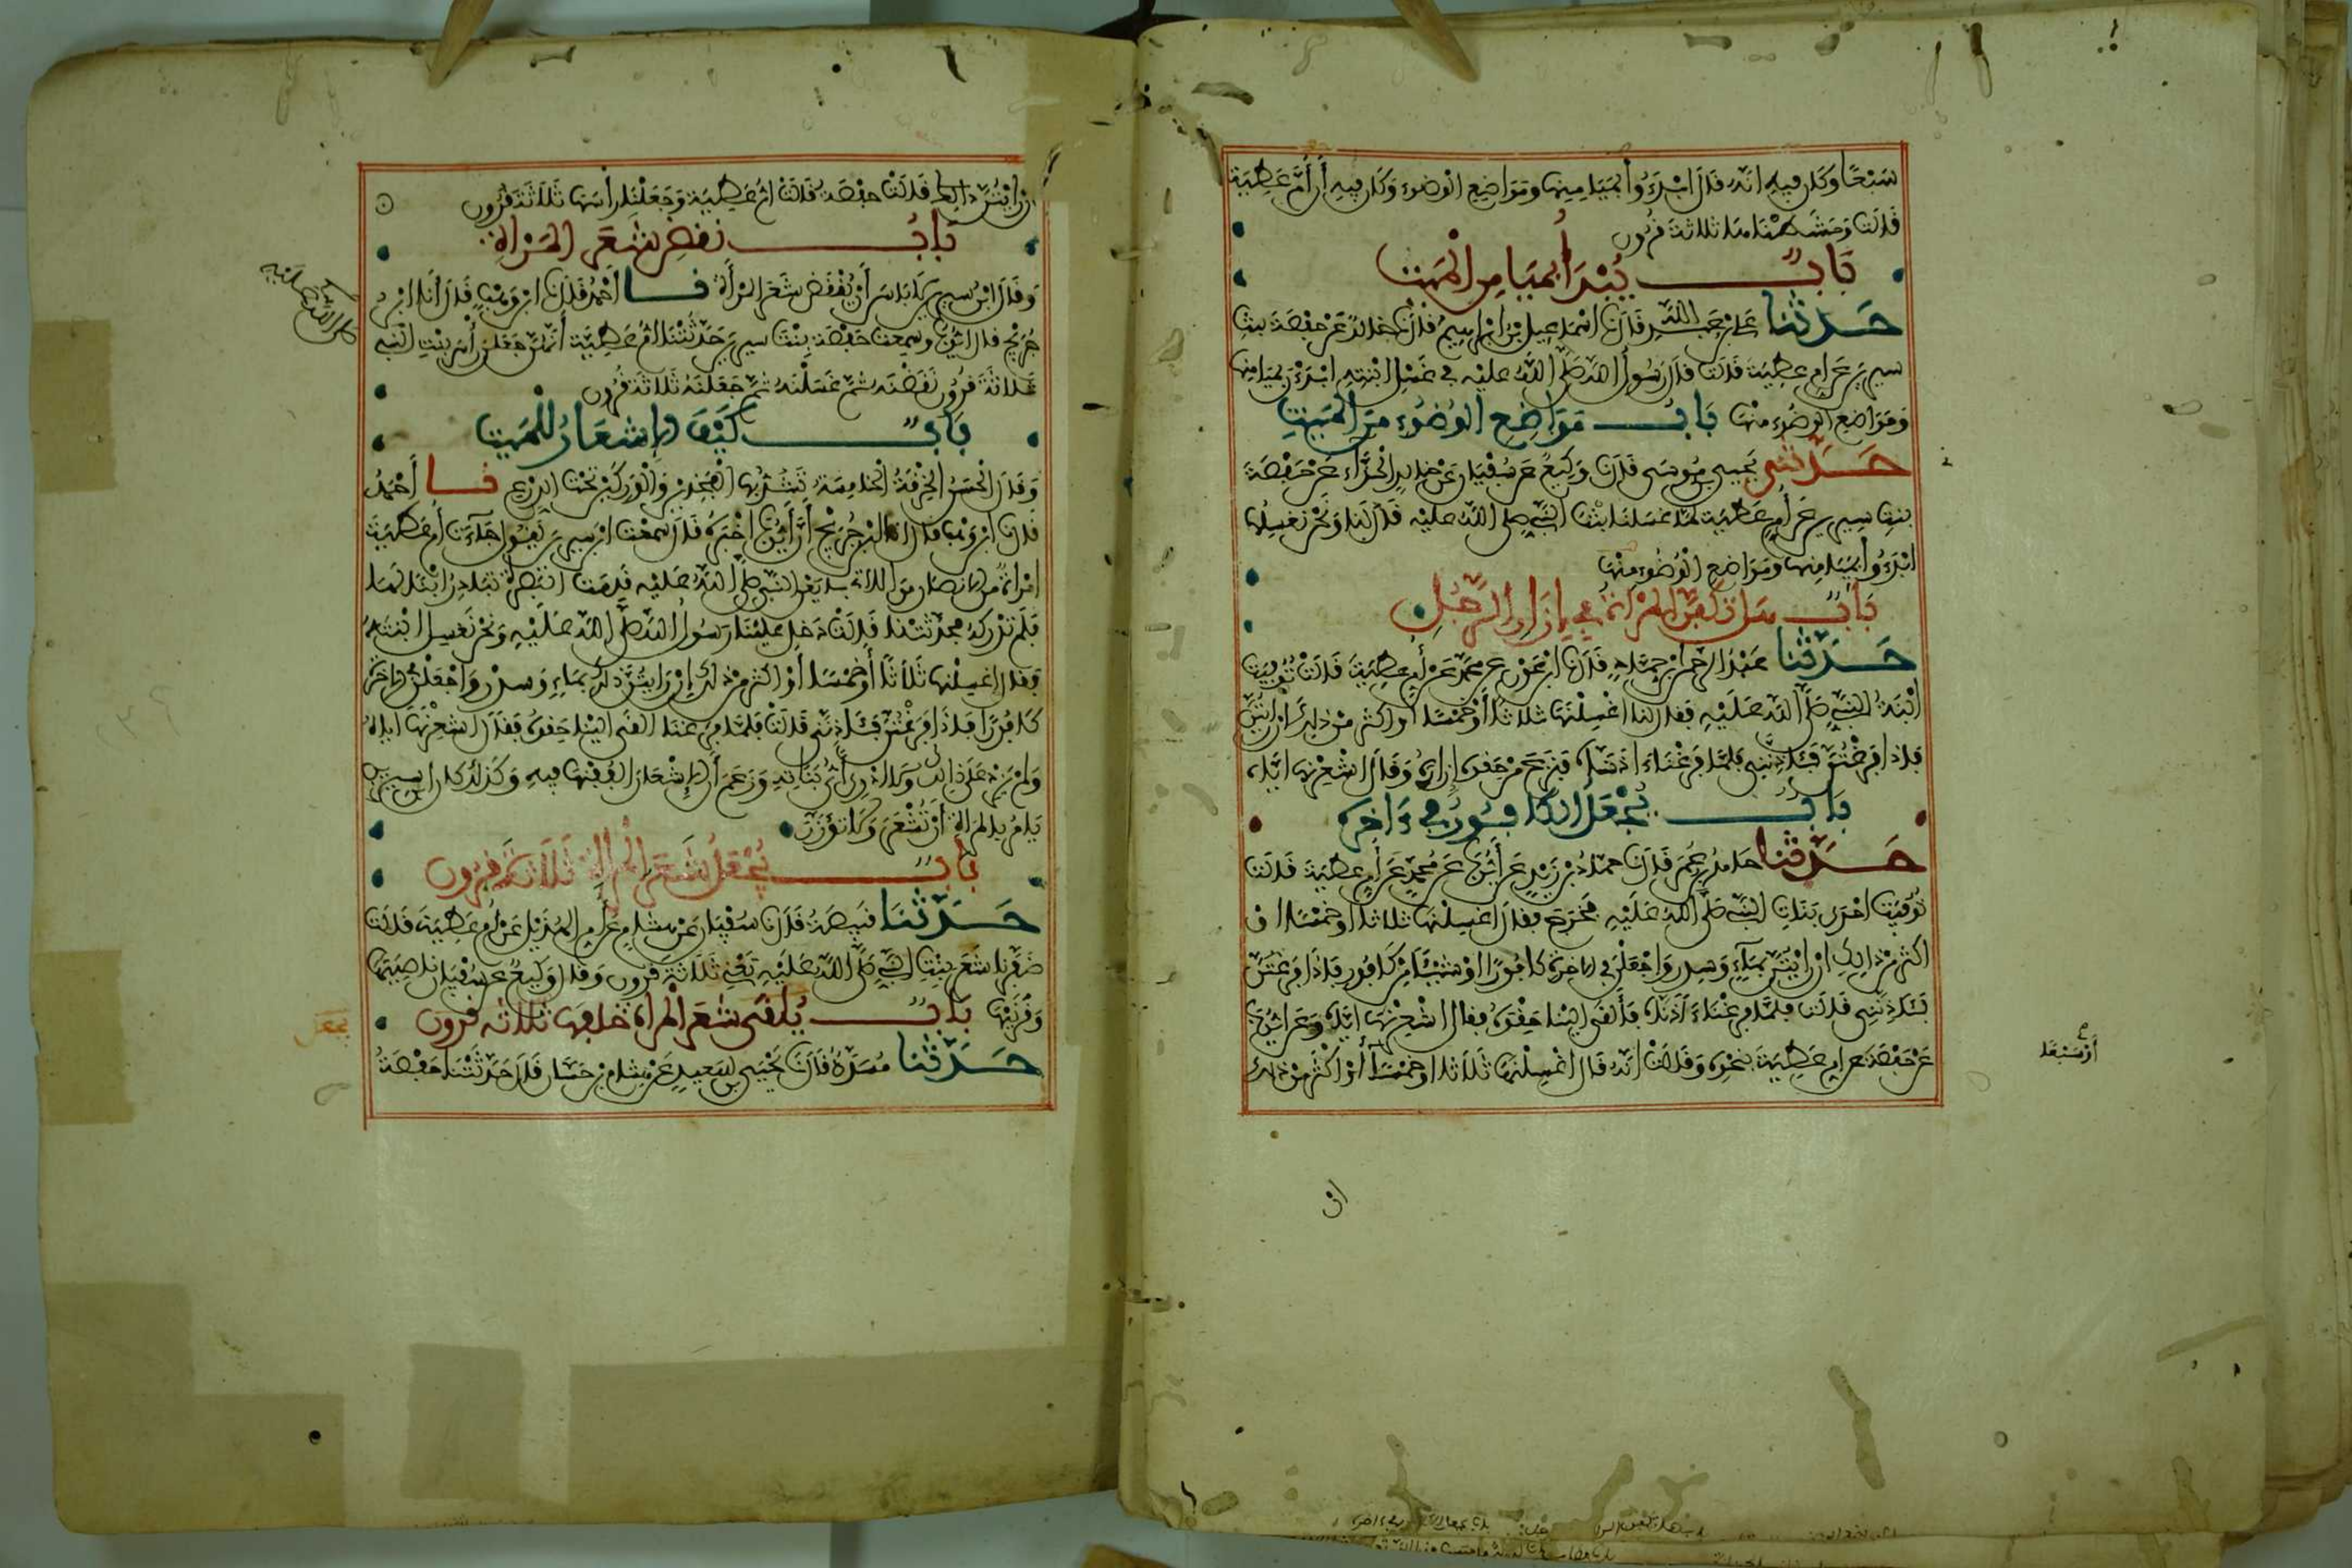 سَبْعًا وكان فيه انه قال ابْدَءُوا بميامنها ومواضع الوضوء وكان فيه أن أمَّ عطية
قالت ومشطناها ثلاثة قرون
بَابٌ يُبْدَأُ بميامِن الميت
حَدَّثنا علي بن عبد الله قال نا اسماعيل بن ابراهيم قال نا خالد عن حفصة بنت
سيرين عن ام عطية قالت قال رسول الله صلى الله عليه في غسل ابنته ابدأن بميامنها
ومواضع الوضوء منها بَابُ مَوَاضِعِ الوُضُوءِ مِنَ الميت
حَدَّثني يحيى بن موسى قال نا وكيع عن سفيان عن خالد الحذَّاء عن حفصة
بنت سيرين عن أم عطية لما غسلنا بنت النبي صلى الله عليه قال لنا ونحن نغسلها
ابدءُوا بميامنها ومواضع الوُضُوء منها
بَابٌ هل تكفن المرأة في إزار الرَّجُل
حَدَّثنا عبد الرحمن بن حماد قال نا ابن عون عن محمد عن أم عطية قالت توفيت
ابنة النبي صلى الله عليه فقال لنا اغسلنها ثلاثا أو خمسا أو أكثر من ذلك ان رأيتن
فاذا فرغتن فآذنني فلما فرغنا ءاذناه فنزع من حقوه إزاره وقال اشعرنها اياه
بَابُ يُجْعَلُ الكافور في ءاخره
حَدَّثنا حامد بن عمر قال نا حماد بن زيد عن أيوب عن محمد عن أم عطية قالت
توفيت احدى بنات النبي صلى الله عليه فخرج فقال اغسلنها ثلاثا أو خمسا او
اكثر من ذلك ان رأيتن بماء وسدر واجعلن في الاخرة كافورًا او شيئًا من كافور فاذا فرغتن
فآذنني قالت فلما فرغنا ءاذناه فألقى الينا حقوه فقال اشعرنها اياه وعن أيوب
عن حفصة عن ام عطية بنحوه وقالت انه قال اغسلنها ثلاثا او خمسا أو اكثر من ذلك
أو سبعا
ان
ان رأيتن ذلك قالت حفصة قالت ام عطية وجعلنا رأسها ثلاثة قرون
بَابُ نقض شعر المرأة
وقال ابن سيرين لا بأس أن ينقض شعر المرأة نا أحمد قال نا ابن وهب قال أنا ابن
جريج قال ايوب وسمعت حفصة بنت سيرين حدثتنا ام عطية أنهن جعلن رأس بنت النبي
ثلاثة قرون نقضنه ثم غسلنه ثم جعلنه ثلاثة قرون
بَابٌ كَيْفَ الإشعار للميت
وقال الحسن الخرقة الخامسة تشد بها الفخذين والوركين تحت الدرع نا أحمد
قال نا ابن وهب قال انا ابن جريج أن أيوب أخبره قال سمعت ابن سيرين يقول جاءت أم عطية
امرأة من الانصار من اللاتي بايعن النبي صلى الله عليه قدمت البصرة تبادر ابنا لها
فلم تدركه فحدثتنا قالت دخل علينا رسول الله صلى الله عليه ونحن نغسل ابنته
فقال اغسلنها ثلاثا أو خمسا أو اكثر من ذلك إن رأيتن ذلك بماء وسدر واجعلن في الاخرة
كافورًا فاذا فرغتن فآذنني قالت فلما فرغنا القى الينا حقوه فقال اشعرنها اياه
ولم يزد على ذلك ولا ادري أي بناته وزعم أن الإشعار الففنها فيه وكذلك كان ابن سيرين
يامر بالمرأة أن تشعر ولا تؤزر
بَابٌ يُجْعَلُ شعر المرأة ثلاثة قرون
حَدَّثنا قبيصة قال نا سفيان عن هشام عن أم الهذيل عن أم عطية قالت
ضفرنا شعر بنت النبي صلى الله عليه تعني ثلاثة قرون وقال وكيع عن سفيان ناصيتها
وقرنيها بَابٌ يُلقى شعر المرأة خلفها ثلاثة قرون
حَدَّثنا مسدد قال نا يحيى بن سعيد عن هشام بن حسان قال حدثتنا حفصة
يجعل